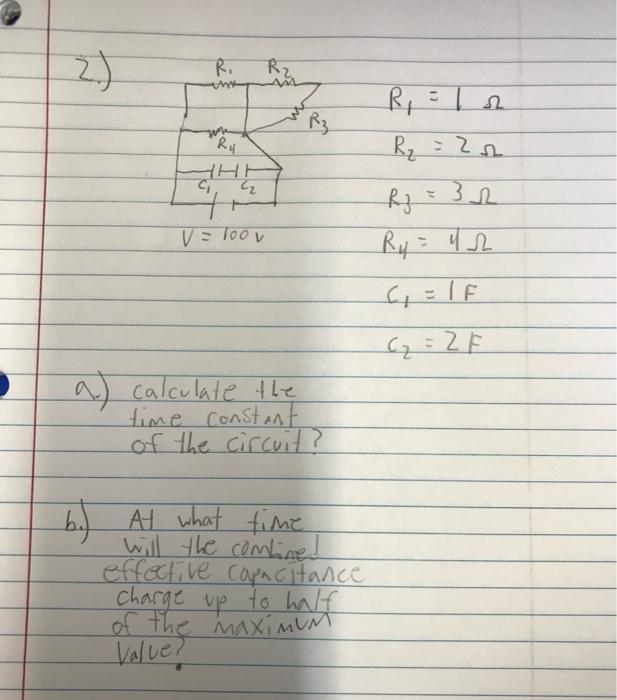 2.)
R1 R2
R3
R4
C1 C2
V = 100 v
R1 = 1 Ω
R2 = 2 Ω
R3 = 3 Ω
R4 = 4 Ω
C1 = 1 F
C2 = 2 F
a.) calculate the
time constant
of the circuit?
b.) At what time
will the combined
effective capacitance
charge up to half
of the maximum
value?